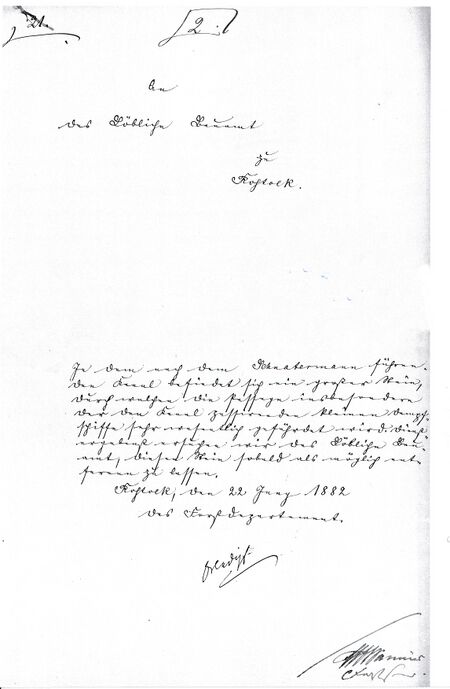 21.
2.
An
das Löbliche Bauamt
zu
Rostock.
In dem nach dem Schnatermann führen-
den Canal befindet sich ein großer Stein,
durch welchen die Passage insbesondere
der den Canal passirenden kleinen Dampf-
schiffe sehr wesentlich gefährdet wird. Dienst-
ergebenst ersuchen wir das Löbliche Bau-
amt, diesen Stein sobald als möglich ent-
fernen zu lassen.
Rostock, den 22 Juny 1882
Das Forstdepartement.
erledigt.